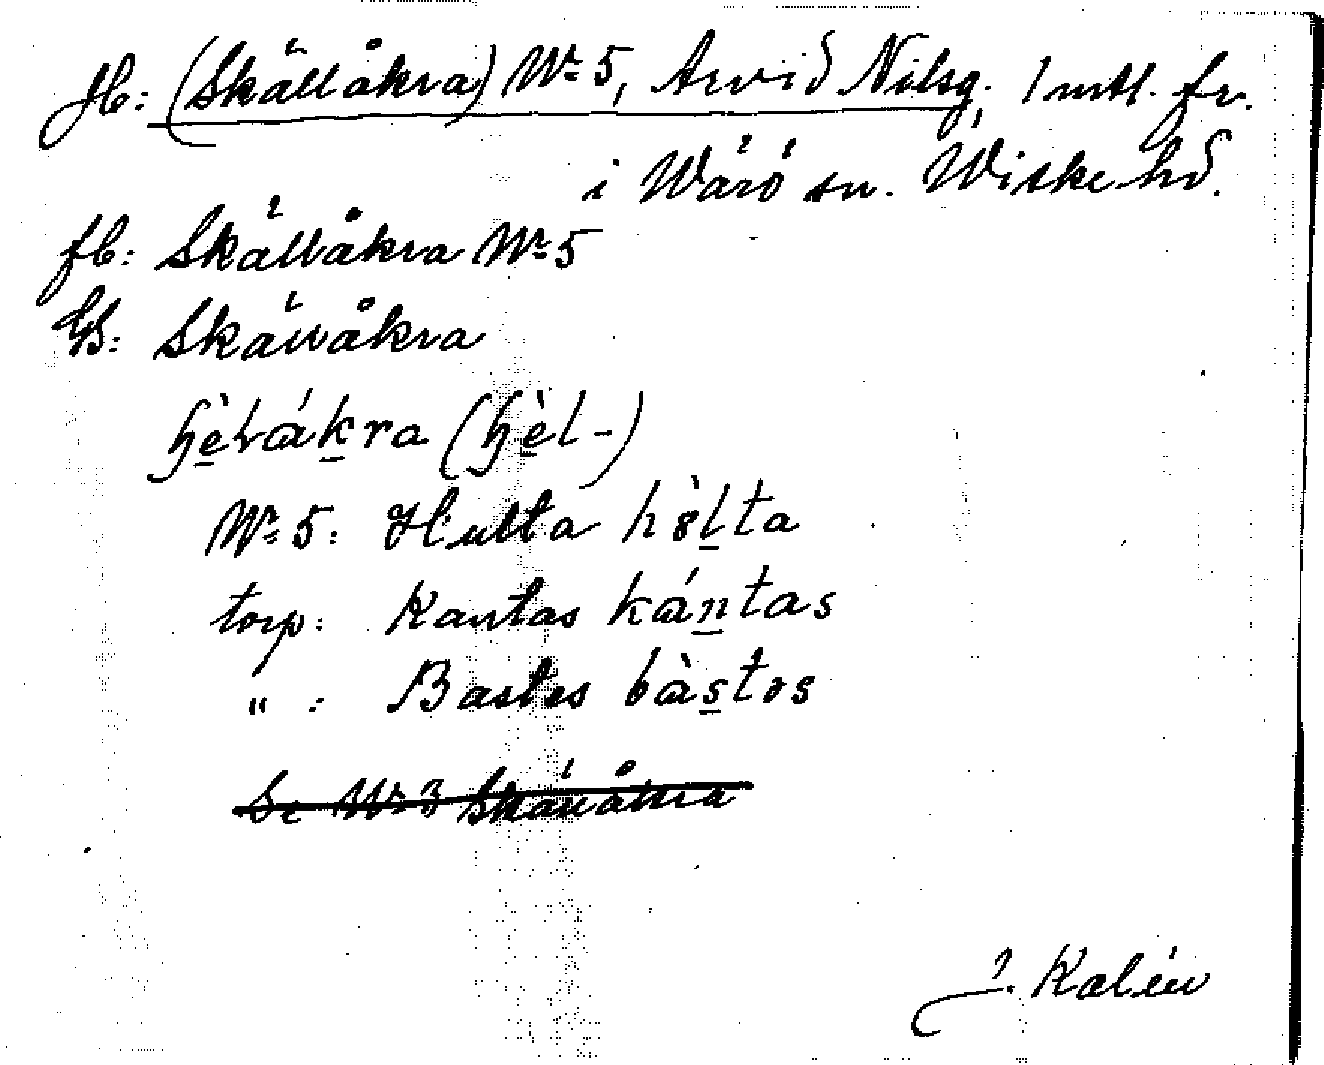 Jb: (Skällåkra) Nr 5, Arvid Nilsg. 1 mtl. fr.
i Wärö sn. Wiske hd.
fb: Skällåkra Nr 5
GS: Skällåkra
hèlákra (hèl-)
Nr 5: Hulta hòlta
torp: Kantas kántas
" : Bastes bàstəs
Se Nr 3 Skällåkra
J. Kalén